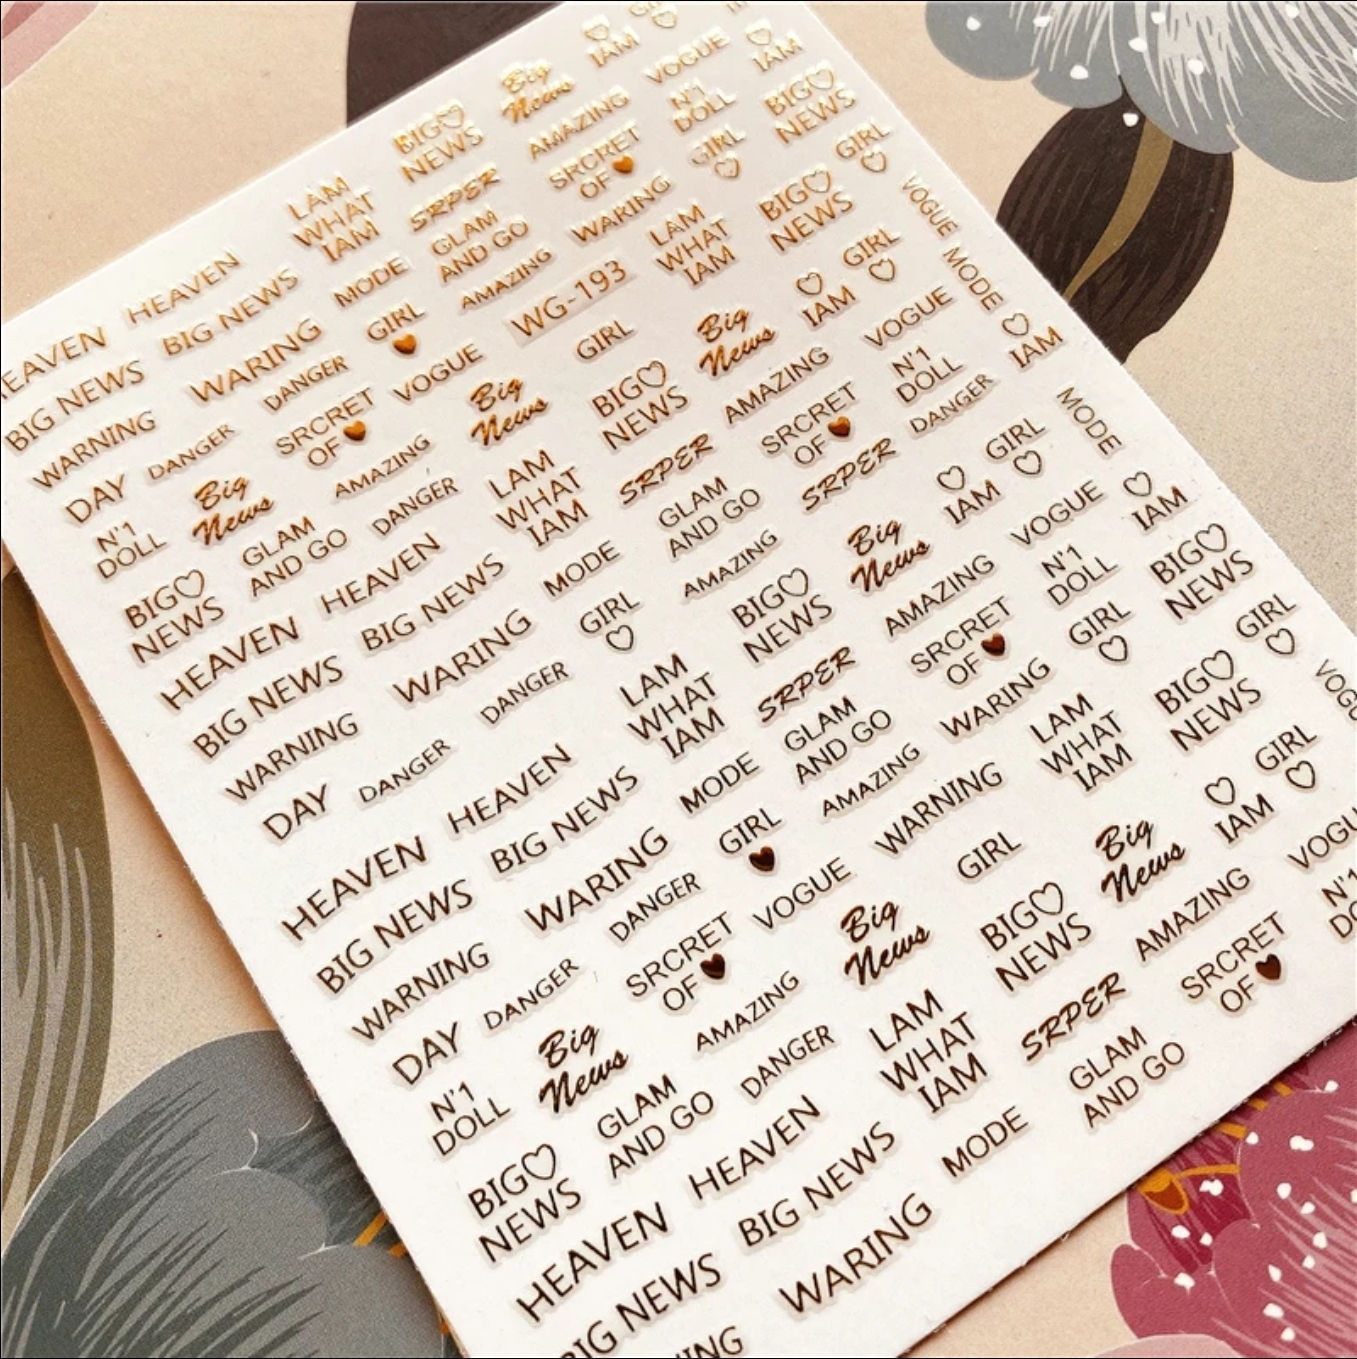 IAM
VOGUE
IAM
Big
News
BIG♡
NEWS
AMAZING
N'1
DOLL
BIG♡
NEWS
SRCRET
OF ♥
GIRL
GIRL
LAM
WHAT
IAM
SRPER
GLAM
AND GO
WARING
LAM
WHAT
IAM
BIG♡
NEWS
VOGUE
HEAVEN
HEAVEN
BIG NEWS
MODE
AMAZING
WG-193
GIRL
MODE
BIG NEWS
WARING
GIRL
VOGUE
GIRL
Big
News
IAM
VOGUE
IAM
WARNING
DANGER
DANGER
SRCRET
OF ♥
Big
News
BIG♡
NEWS
AMAZING
N'1
DOLL
DAY
Big
News
AMAZING
SRCRET
OF ♥
DANGER
MODE
N'1
DOLL
GLAM
AND GO
DANGER
LAM
WHAT
IAM
SRPER
SRPER
GIRL
BIG♡
NEWS
HEAVEN
GLAM
AND GO
IAM
VOGUE
IAM
HEAVEN
BIG NEWS
MODE
AMAZING
Big
News
N'1
DOLL
BIG♡
NEWS
BIG NEWS
WARING
GIRL
BIG♡
NEWS
AMAZING
SRCRET
OF ♥
GIRL
GIRL
WARNING
DANGER
LAM
WHAT
IAM
SRPER
WARING
BIG♡
NEWS
DAY
DANGER
HEAVEN
MODE
GLAM
AND GO
LAM
WHAT
IAM
GIRL
HEAVEN
BIG NEWS
GIRL
AMAZING
WARNING
IAM
BIG NEWS
WARING
DANGER
VOGUE
GIRL
Big
News
WARNING
DANGER
SRCRET
OF ♥
Big
News
BIG♡
NEWS
AMAZING
DAY
Big
News
AMAZING
LAM
WHAT
IAM
SRPER
SRCRET
OF ♥
N'1
DOLL
GLAM
AND GO
DANGER
GLAM
AND GO
BIG♡
NEWS
HEAVEN
MODE
HEAVEN
BIG NEWS
BIG NEWS
WARING